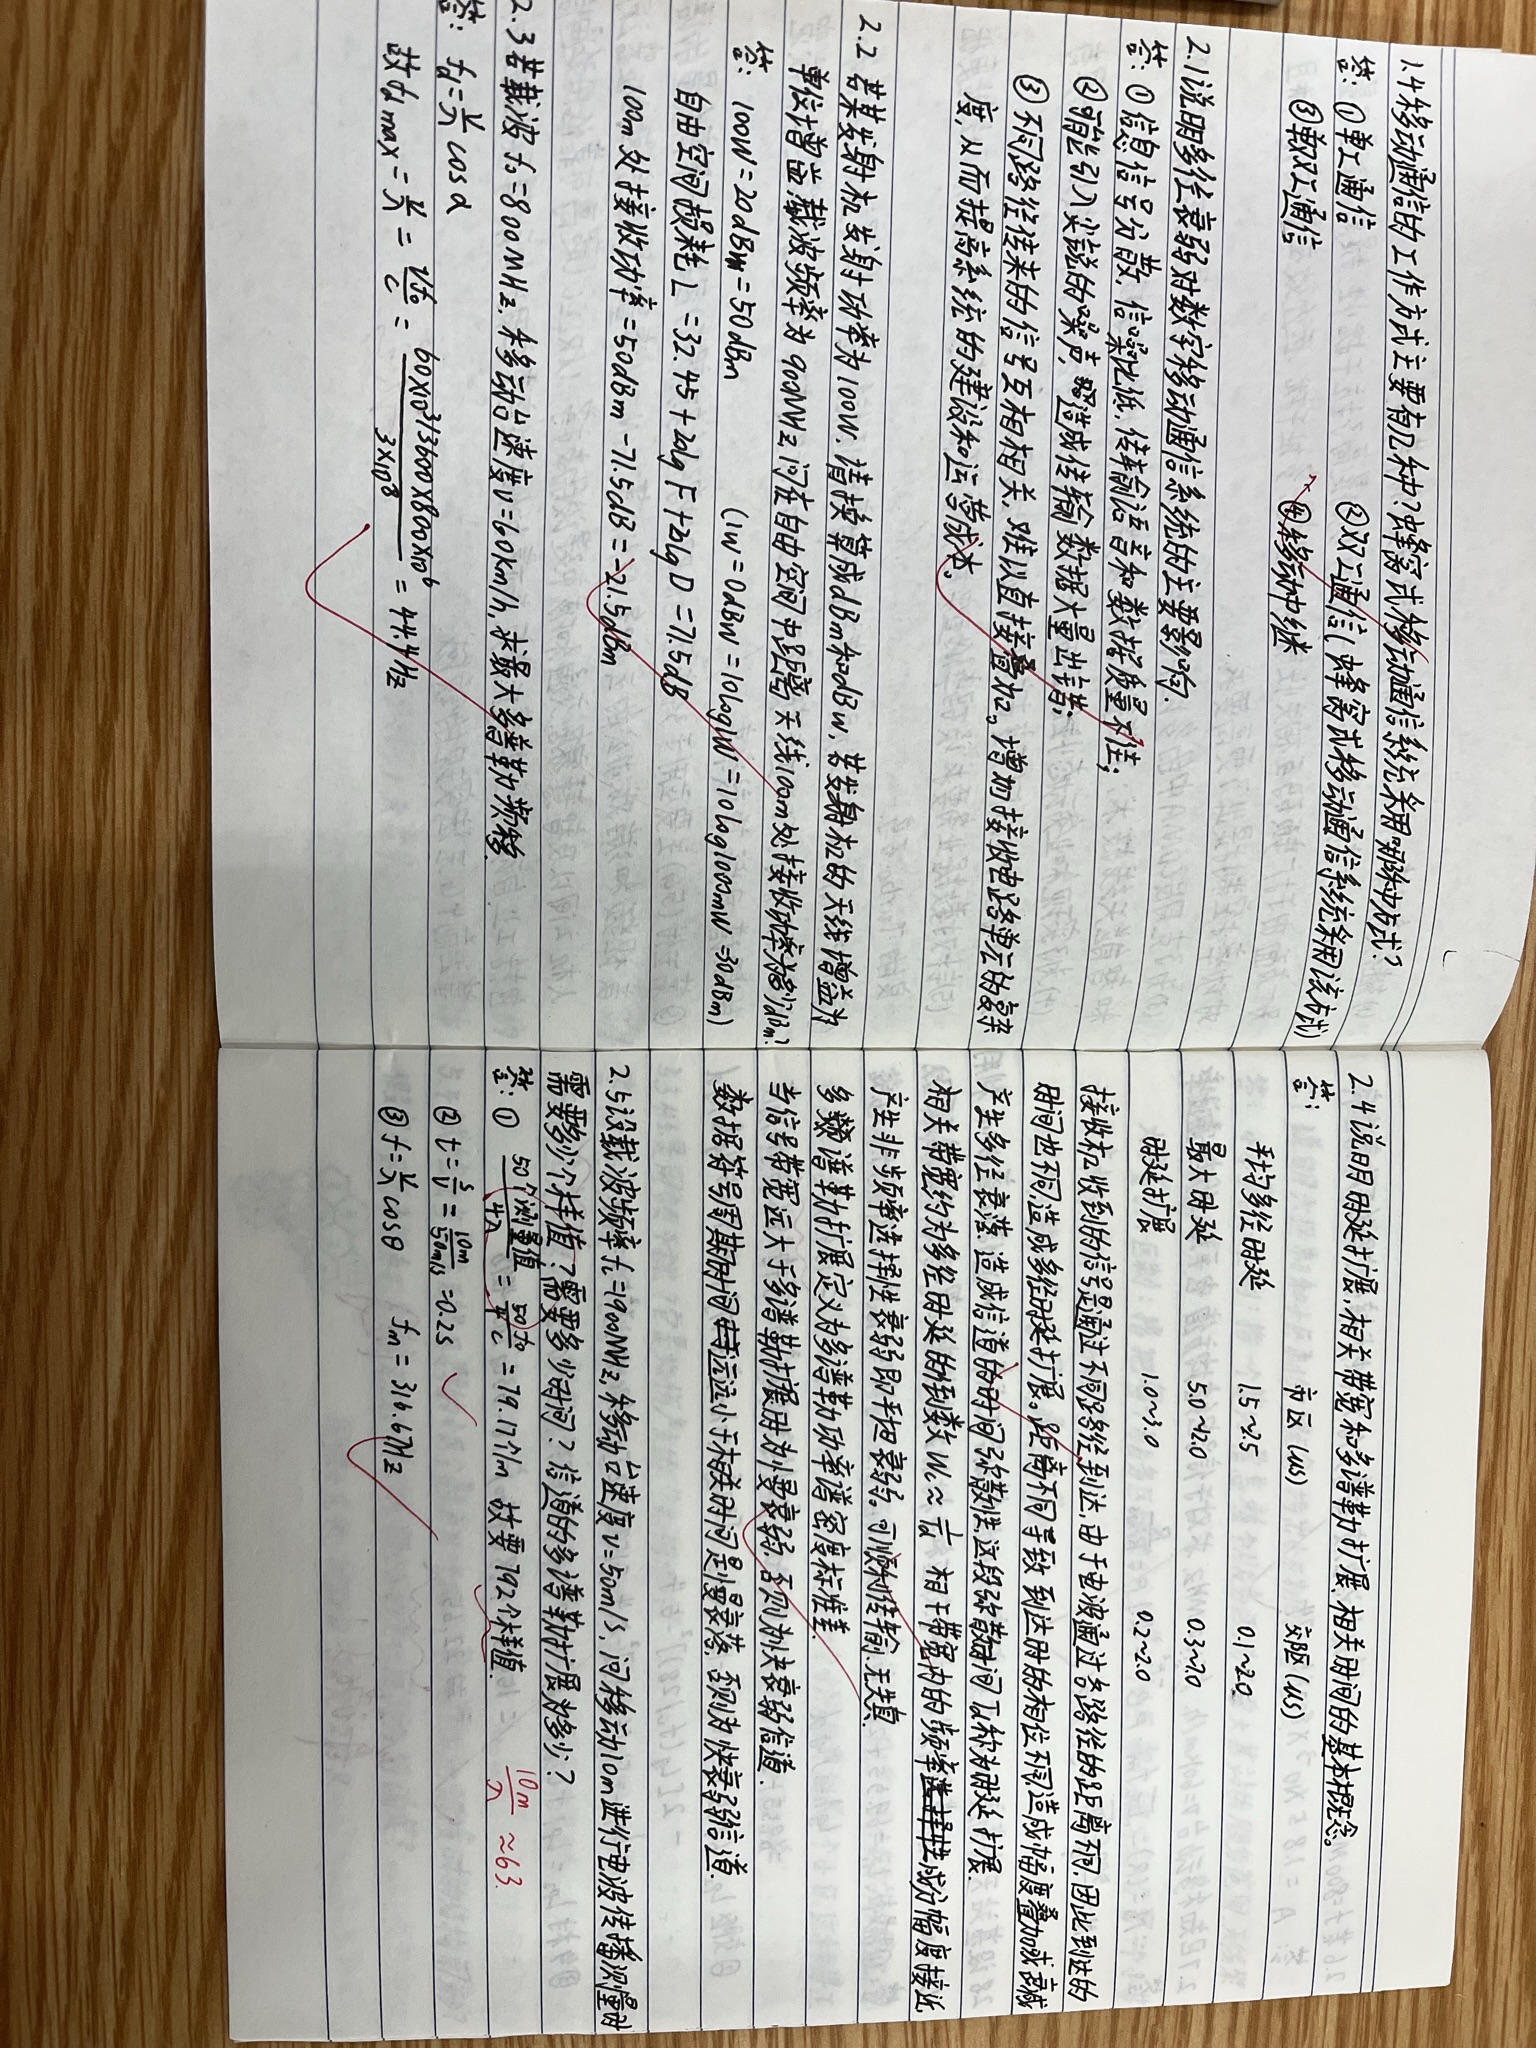 1.4移动通信的工作方式主要有几种?蜂窝式移动通信系统采用哪种方式?
答: ①单工通信 ②双工通信(蜂窝式移动通信系统采用该方式)
③半双工通信 ④移动中继
2.1说明多径衰弱对数字移动通信系统的主要影响.
答: ①信息信号分散,信噪比低,传输语言和数据质量不佳;
②可能引入尖锐的噪声,照造成传输数据大量出错;
③不同路径传来的信号互相相关,难以直接叠加。增加接收电路单元的复杂
度,从而提高系统的建设和运营成本。
2.2 若某发射机发射功率为100W,请换算成dBm和dBw,若发射机的天线增益为
单位增益,载波频率为900MHz,问在自由空间中距离天线100m处接收功率为多少dBm?
答: 100W=20dBw=50dBm (1W=0dBW=10lg1W=10lg1000mW=30dBm)
自由空间损耗L=32.45+20lgF+20lgD=71.5dB
100m处接收功率=50dBm-71.5dB=-21.5dBm
2.3若载波f₀=800MHz,移动台速度v=60km/h,求最大多普勒频移.
答: fd=v/λ cosα
故fd max=v/λ=vf₀/c=60×10³/3600×800×10⁶/3×10⁸=44.4Hz
2.4说明时延扩展,相关带宽和多谱勒扩展,相关时间的基本概念。
答: 市区(us) 郊区(us)
平均多径时延 1.5~2.5 0.1~2.0
最大时延 5.0~12.0 0.3~7.0
时延扩展 1.0~3.0 0.2~2.0
接收机收到的信号是通过不同路径到达,由于电波通过各路径的距离不同,因此到达的
时间也不同,造成多径时延扩展。距离不同导致到达时的相位不同,造成幅度叠加或衰减
产生多径衰落,造成信道的时间弥散性,这段弥散时间Tm称为时延扩展.
相关带宽约为多径时延的倒数Wc≈1/Tm 相干带宽内的频率成分幅度接近
产生非频率选择性衰弱即平坦衰弱。可顺利传输,无失真.
多普勒扩展定义为多谱勒功率谱密度标准差.
当信号带宽远大于多谱勒扩展时为慢衰弱,否则为快衰弱信道.
数据符号周期时间远远小于相关时间是慢衰落,否则为快衰弱信道.
2.5设载波频率fc=1900MHz,移动台速度v=50m/s,问移动10m进行电波传播测量时
需要多少个样值?需要多少时间?信道的多谱勒扩展为多少?
答: ① 50个测量值/4λ=50f₀/4c=79.17个/m 故要792个样值. 10m/λ≈63.
②t=s/v=10m/50m/s=0.2s
③f=v/λ cosθ fm=316.67Hz